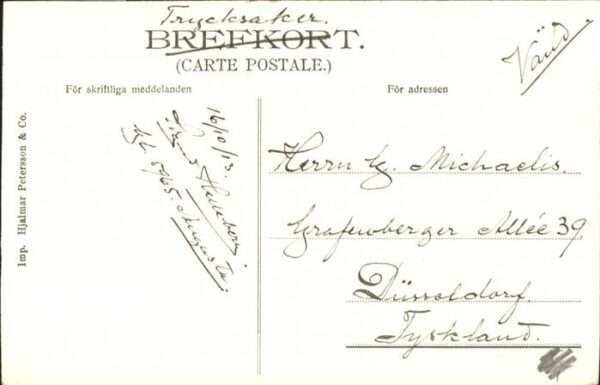 Trycksaker.
BREFKORT.
(CARTE POSTALE.)
Vänd.
För skriftliga meddelanden
För adressen
16/10/13.
Herrn G. Michaelis.
Grafenberger Allée 39
Düsseldorf.
Tyskland.
Imp. Hjalmar Petersson & Co.